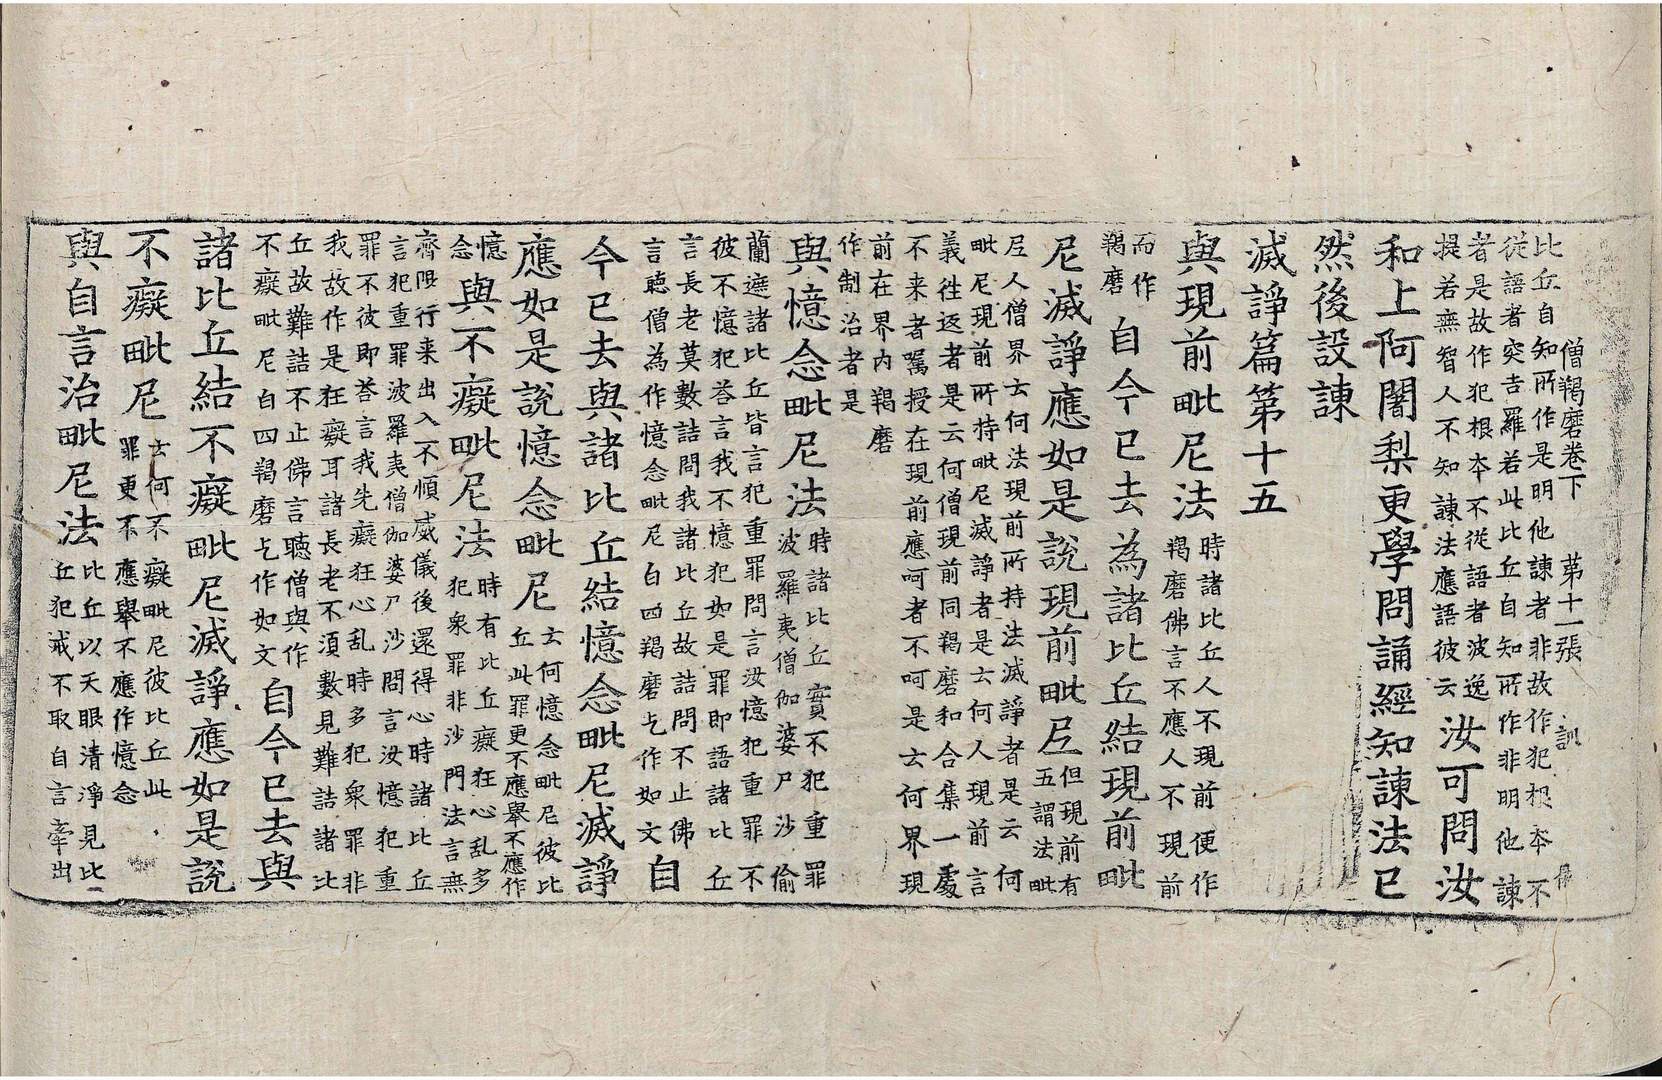 僧羯磨卷下 第十一張 訓
比丘自知所作是明他諫者非故作犯根本不
從語者突吉羅若此比丘自知所作非明他諫
者是故作犯根本不從語者波逸
提若無智人不知諫法應語彼云
汝可問汝
和上阿闍梨更學問誦經知諫法已
然後設諫
滅諍篇第十五
與現前毗尼法
時諸比丘人不現前便作
羯磨佛言不應人不現前
而作
羯磨
自今已去為諸比丘結現前毗
尼滅諍應如是說現前毗尼
但現前有
五謂法毗
尼人僧界云何法現前所持法滅諍者是云何
毗尼現前所持毗尼滅諍者是云何人現前言
義往返者是云何僧現前同羯磨和合集一處
不来者囑授在現前應呵者不呵是云何界現
前在界內羯磨
作制治者是
與憶念毗尼法
時諸比丘實不犯重罪
波羅夷僧伽婆尸沙偷
蘭遮諸比丘皆言犯重罪問言汝憶犯重罪不
彼不憶犯荅言我不憶犯如是罪即語諸比丘
言長老莫數詰問我諸比丘故詰問不止佛
言聽僧為作憶念毗尼白四羯磨乞作如文
自
今已去與諸比丘結憶念毗尼滅諍
應如是說憶念毗尼
云何憶念毗尼彼比
丘此罪更不應舉不應作
憶
念
與不癡毗尼法
時有比丘癡狂心乱多
犯衆罪非沙門法言無
齊限行来出入不順威儀後還得心時諸比丘
言犯重罪波羅夷僧伽婆尸沙問言汝憶犯重
罪不彼即荅言我先癡狂心乱時多犯衆罪非
我故作是狂癡耳諸長老不須數見難詰諸比
丘故難詰不止佛言聽僧與作
不癡毗尼白四羯磨乞作如文
自今已去與
諸比丘結不癡毗尼滅諍應如是說
不癡毗尼
云何不癡毗尼彼比丘此
罪更不應舉不應作憶念
與自言治毗尼法
比丘以天眼清淨見比
丘犯戒不取自言牽出